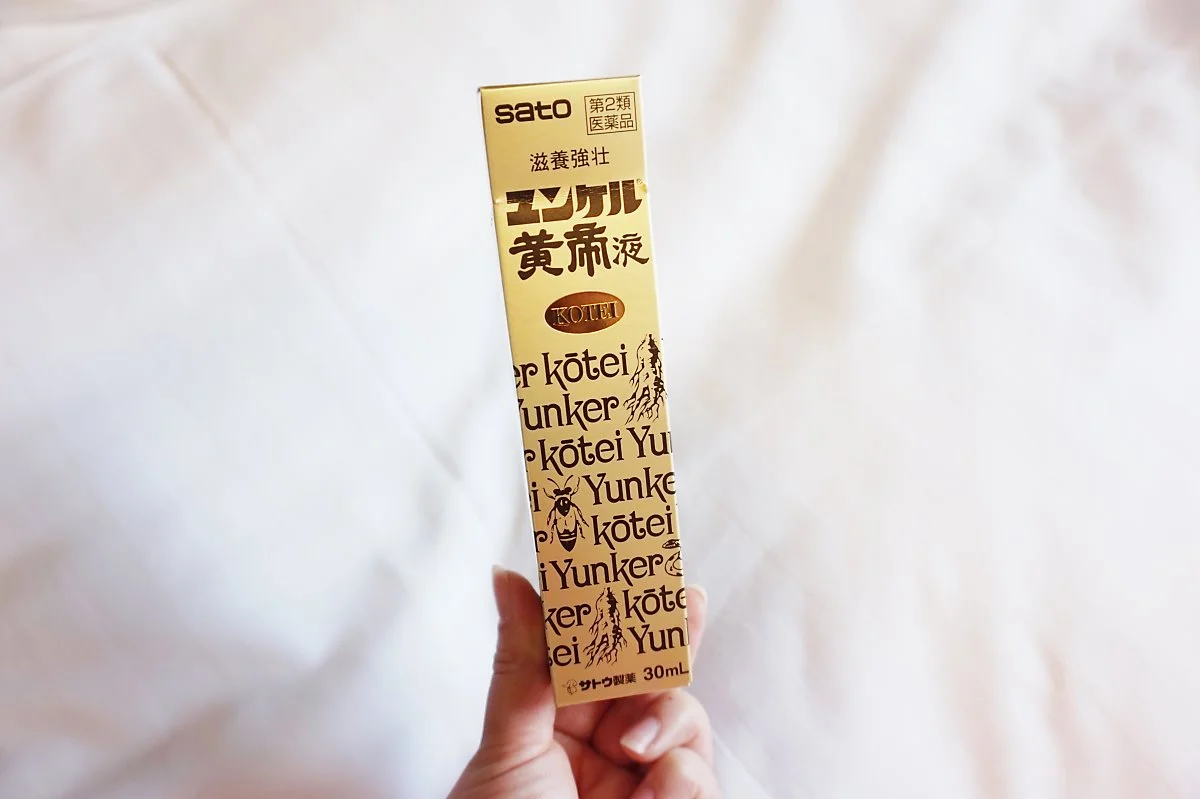 sato
第2類
医薬品
滋養強壮
ユンケル
黄帝液
KOTEI
er kōtei
Yunker
r kōtei Yu
i Yunke
r kōtei
i Yunker
ker kōte
tei Yun
サトウ製薬 30mL